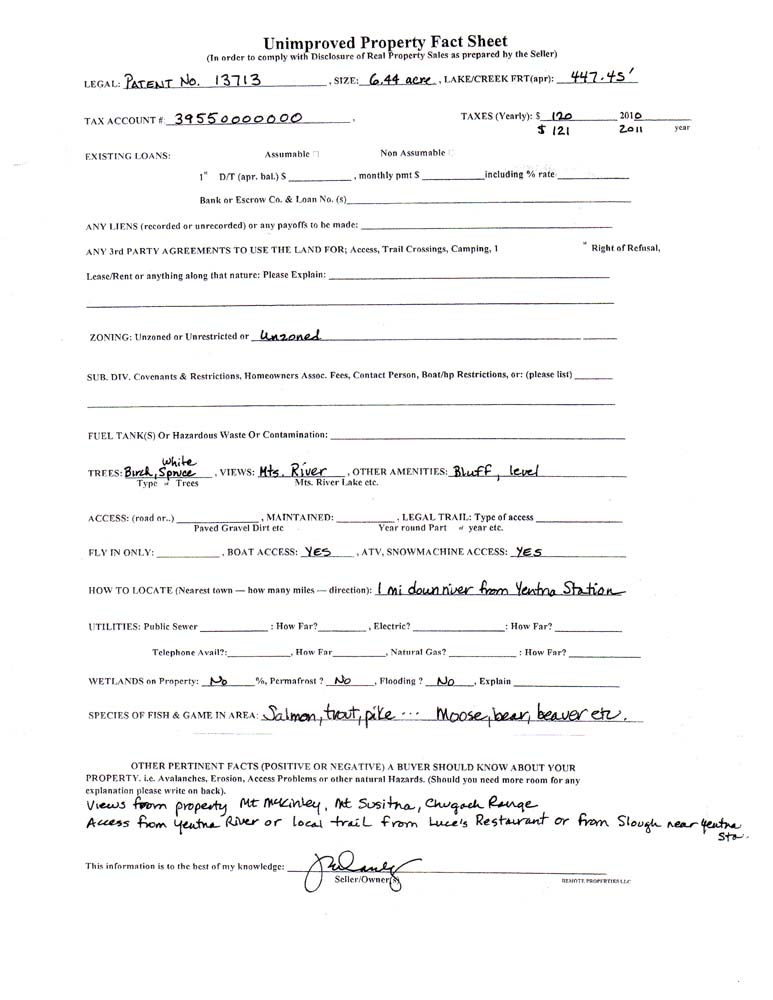 Unimproved Property Fact Sheet
(In order to comply with Disclosure of Real Property Sales as prepared by the Seller)
LEGAL: PATENT No. 13713, SIZE: 6.44 acre, LAKE/CREEK FRT(apr): 447.45'
TAX ACCOUNT #: 39550000000, TAXES (Yearly): $ 120 2010
$ 121 2011 year
EXISTING LOANS: Assumable □ Non Assumable □
1st D/T (apr. bal.) $ ____, monthly pmt $ ____ including % rate ____
Bank or Escrow Co. & Loan No. (s) ____
ANY LIENS (recorded or unrecorded) or any payoffs to be made: ____
ANY 3rd PARTY AGREEMENTS TO USE THE LAND FOR; Access, Trail Crossings, Camping, 1st Right of Refusal,
Lease/Rent or anything along that nature: Please Explain: ____
ZONING: Unzoned or Unrestricted or Unzoned
SUB. DIV. Covenants & Restrictions, Homeowners Assoc. Fees, Contact Person, Boat/hp Restrictions, or: (please list) ____
FUEL TANK(S) Or Hazardous Waste Or Contamination: ____
white
TREES: Birch, Spruce, VIEWS: Mts. River, OTHER AMENITIES: Bluff, level
Type of Trees Mts. River Lake etc.
ACCESS: (road or..) ____, MAINTAINED: ____, LEGAL TRAIL: Type of access ____
Paved Gravel Dirt etc Year round Part of year etc.
FLY IN ONLY: ____, BOAT ACCESS: YES, ATV, SNOWMACHINE ACCESS: YES
HOW TO LOCATE (Nearest town — how many miles — direction): 1 mi down river from Yentna Station
UTILITIES: Public Sewer ____: How Far? ____, Electric? ____: How Far? ____
Telephone Avail?: ____, How Far ____, Natural Gas? ____: How Far? ____
WETLANDS on Property: No %, Permafrost ? No, Flooding ? No, Explain ____
SPECIES OF FISH & GAME IN AREA: Salmon, trout, pike ... Moose, bear, beaver etc.
OTHER PERTINENT FACTS (POSITIVE OR NEGATIVE) A BUYER SHOULD KNOW ABOUT YOUR
PROPERTY. i.e. Avalanches, Erosion, Access Problems or other natural Hazards. (Should you need more room for any
explanation please write on back).
Views from property Mt McKinley, Mt Susitna, Chugach Range
Access from Yentna River or local trail from Luce's Restaurant or from Slough near Yentna
Sta.
This information is to the best of my knowledge:
Seller/Owner(s)
REMOTE PROPERTIES LLC